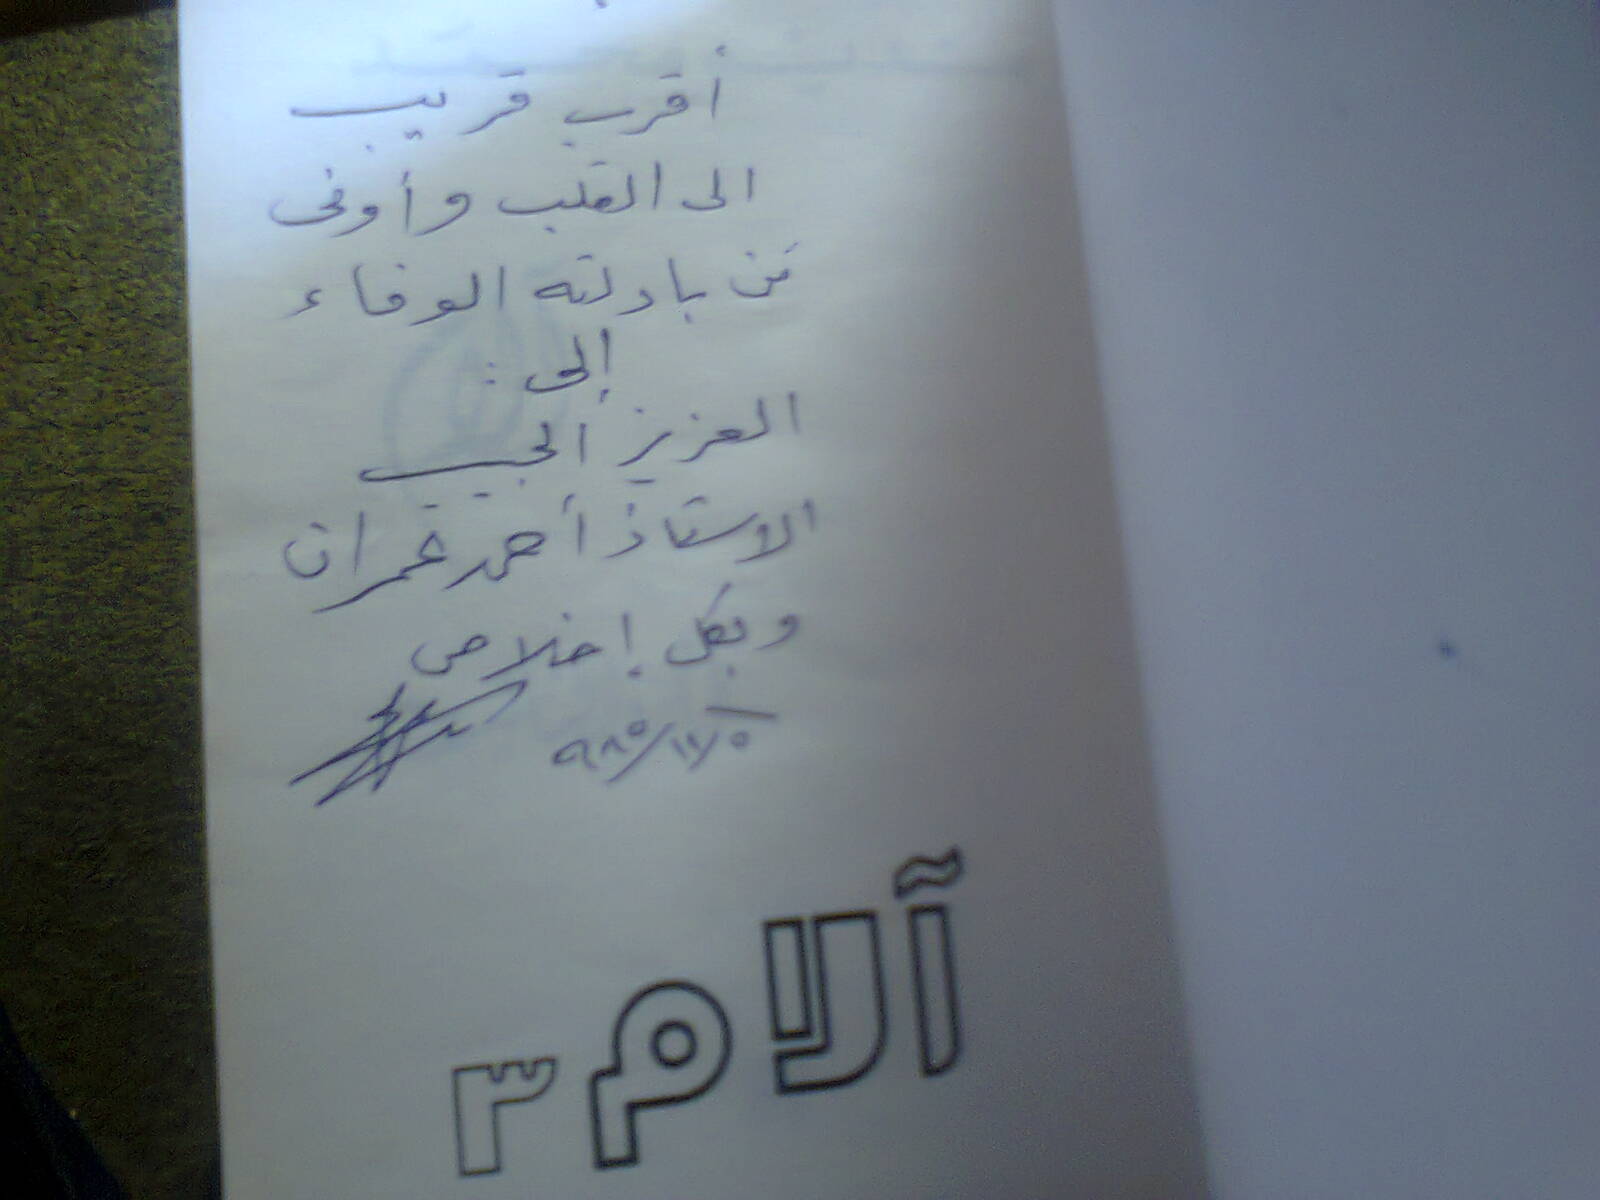 أقرب قريب
الى القلب وأوفى
من بادلته الوفاء
إلى :
العزيز الحبيب
الاستاذ أحمد عمران
وبكل إخلاص
٩٨٥/١١/٥
آلام ٣